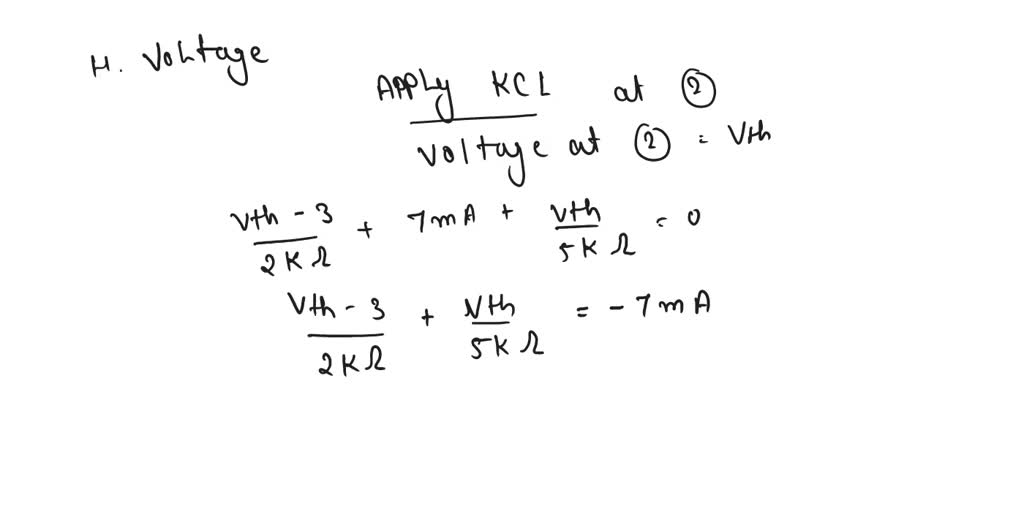 H. Voltage
APPly KCL at ②
Voltage at ② = Vth
Vth - 3 / 2KΩ + 7mA + Vth / 5KΩ = 0
Vth - 3 / 2KΩ + Vth / 5KΩ = -7mA